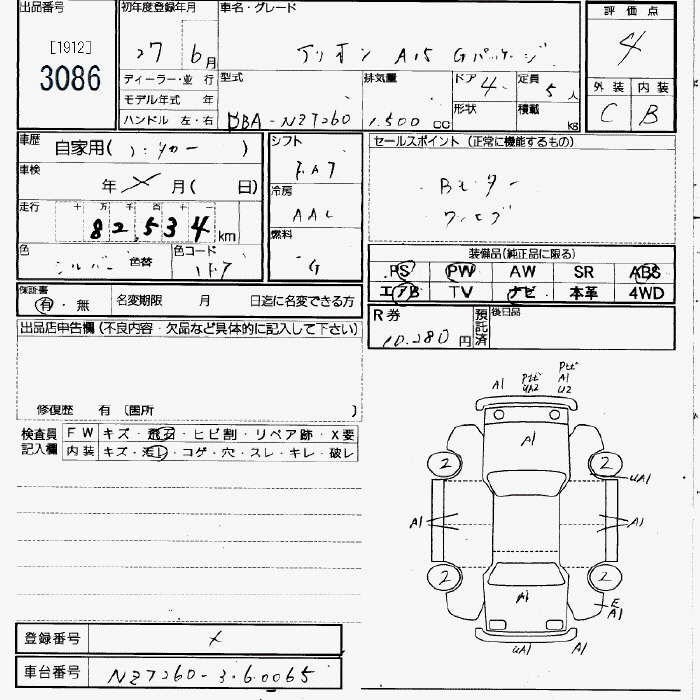 出品番号
[1912]
3086
初年度登録年月
27 6月
ディーラー・並 行
モデル年式 年
ハンドル 左・右
車名・グレード
アリオン A15 Gパッケージ
型式
DBA-NZT260
排気量
1.500 CC
ドア 4
形状
定員 5 人
積載 kg
評価点
4
外装 内装
C B
車歴
自家用( )
車検
年 月( 日)
走行
十 万 千 百 十 一
82,534 km
色
シルバー 色替
色コード
1F7
シフト
FAT
冷房
AAC
燃料
G
セールスポイント (正常に機能するもの)
Bモター
ワンセグ
装備品(純正品に限る)
PS PW AW SR ABS
エアB TV ナビ 本革 4WD
保証書
有・無
名変期限 月 日迄に名変できる方
R券
10.280 円
預託済
後日品
出品店申告欄(不良内容・欠品など具体的に記入して下さい)
修復歴 有 〔箇所 〕
検査員記入欄
FW キズ・飛石・ヒビ割・リペア跡・X要
内装 キズ・汚れ・コゲ・穴・スレ・キレ・破レ
A1 Pセビ UA2 Pセビ A1 U2
A1
2 2
UA1
A1 A1
2 2
A1
E A1
UA1 A1
登録番号 ×
車台番号 NZT260-3160065